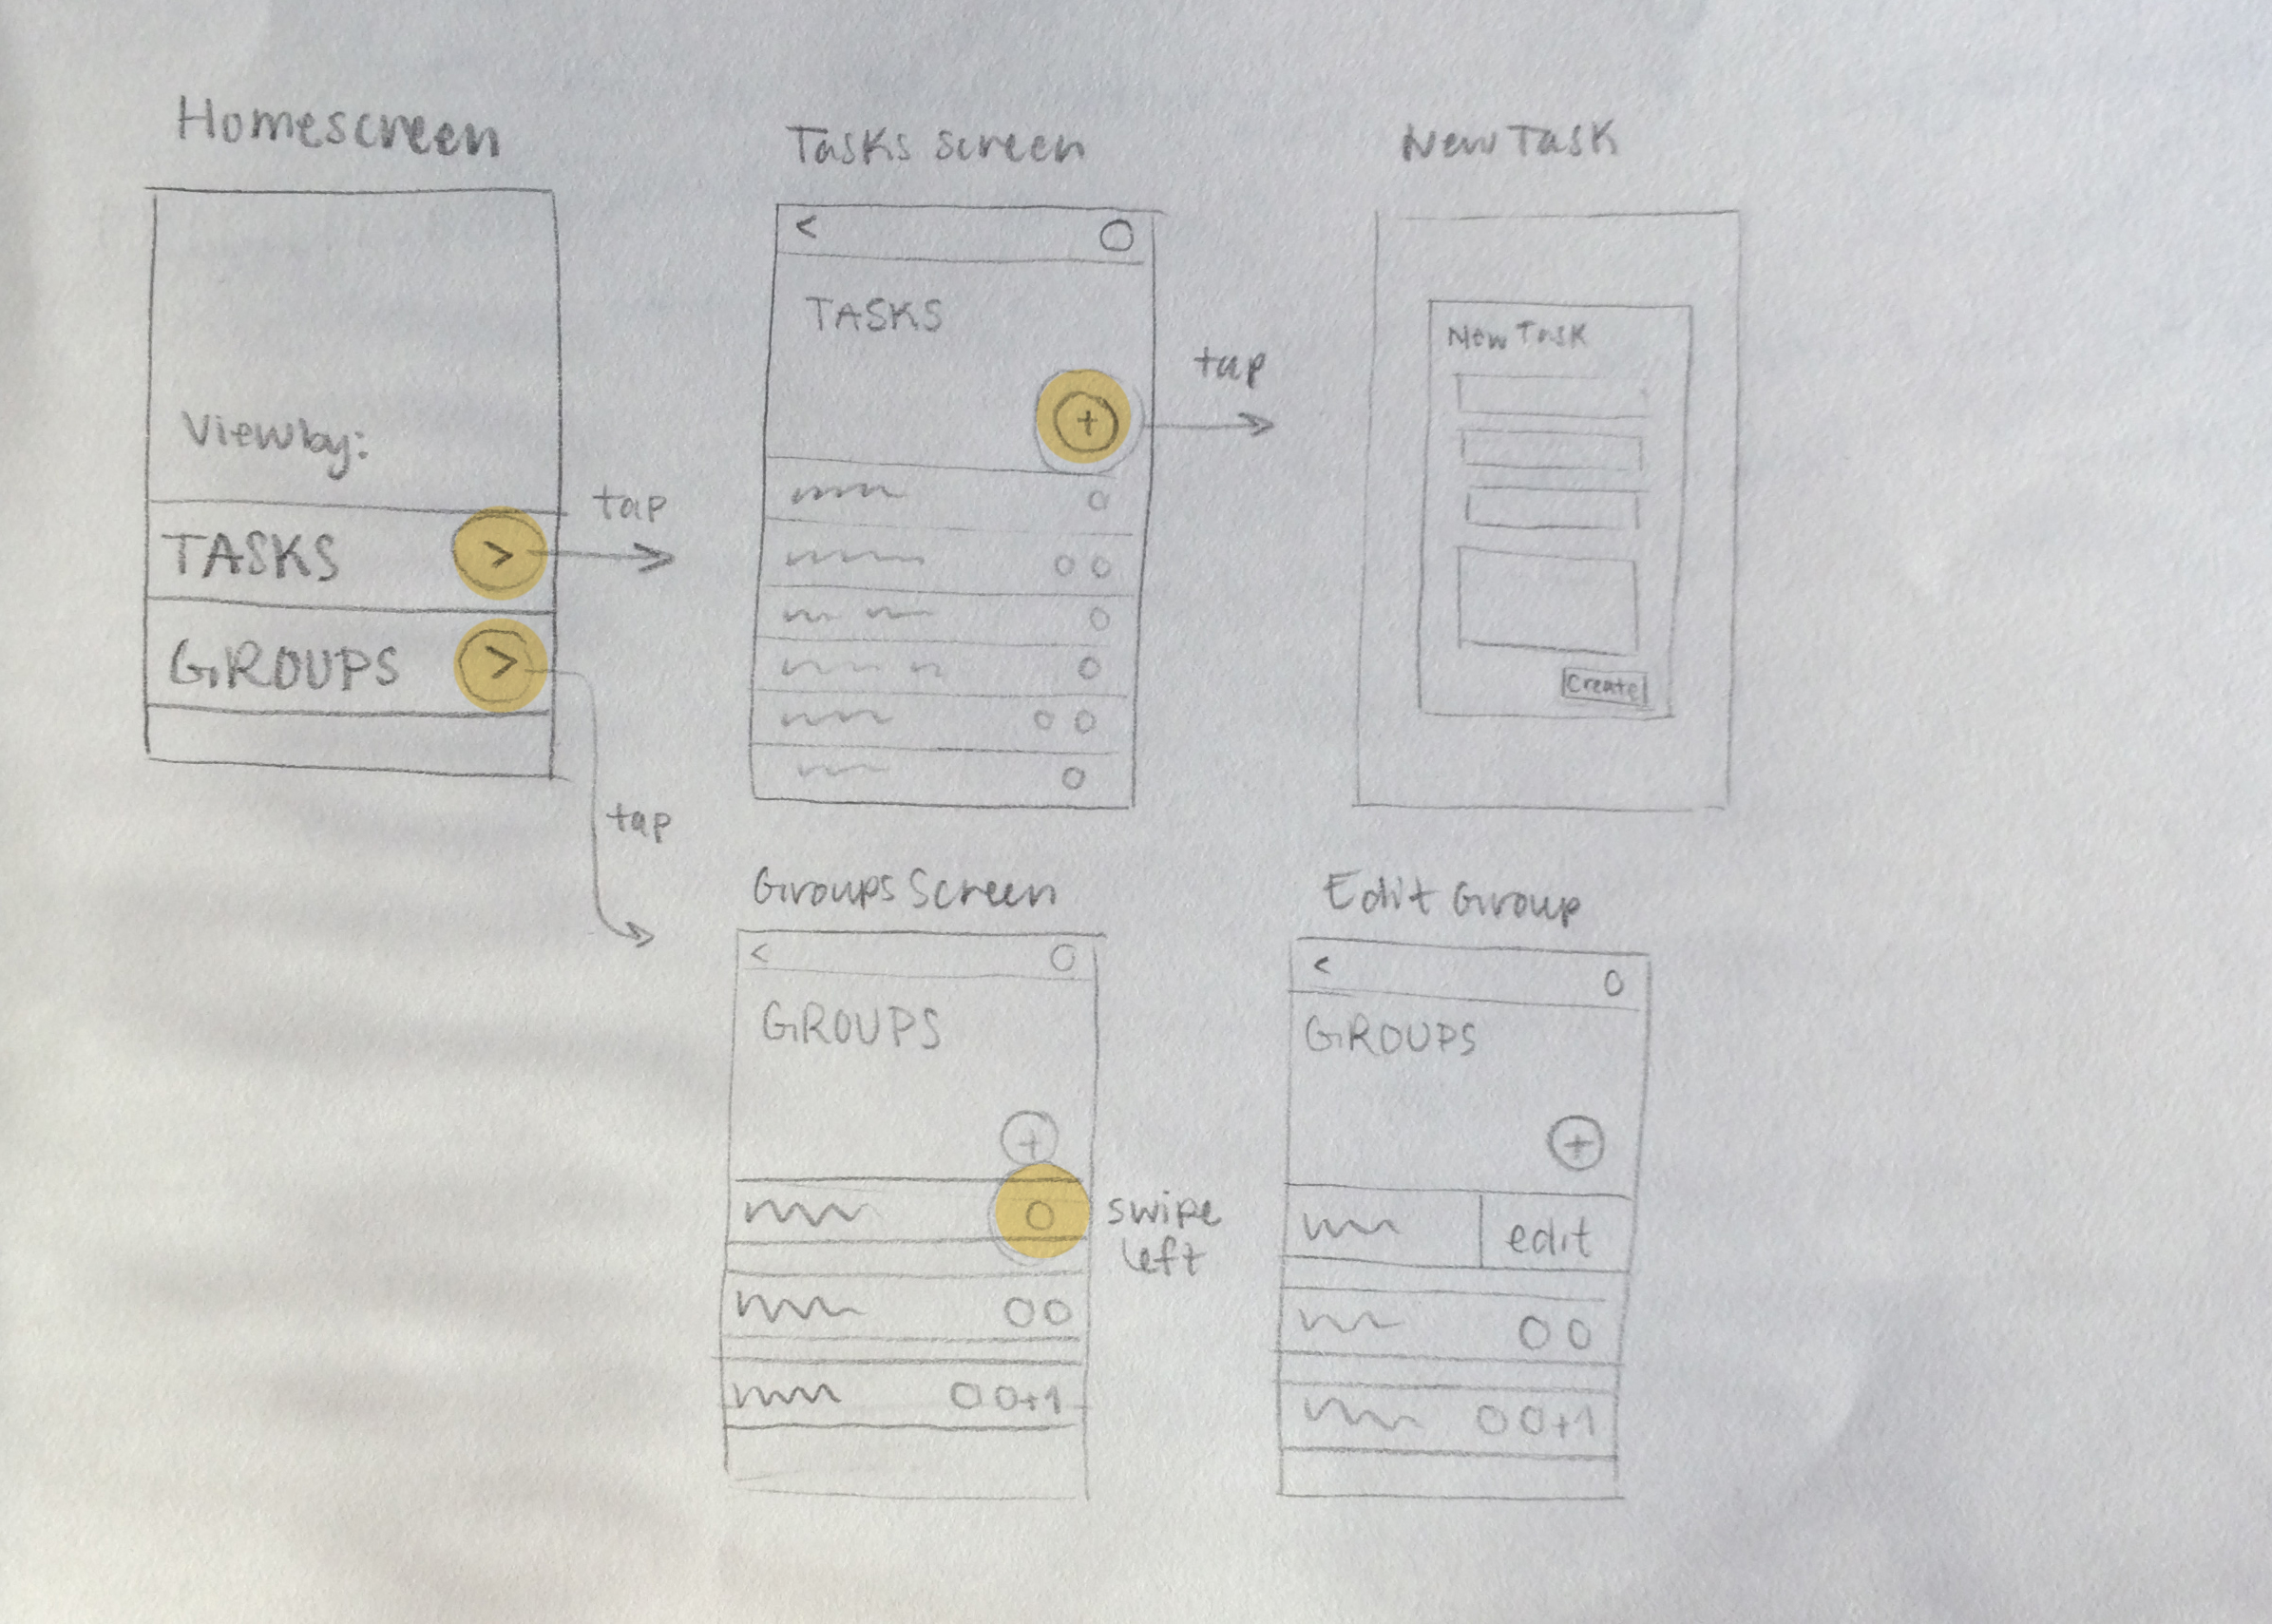 Homescreen
View by:
TASKS >
GROUPS >
tap
tap
Tasks screen
<
TASKS
+
tap
New Task
New Task
Create
Groups Screen
<
GROUPS
+
swipe
left
+1
Edit Group
<
GROUPS
+
edit
+1